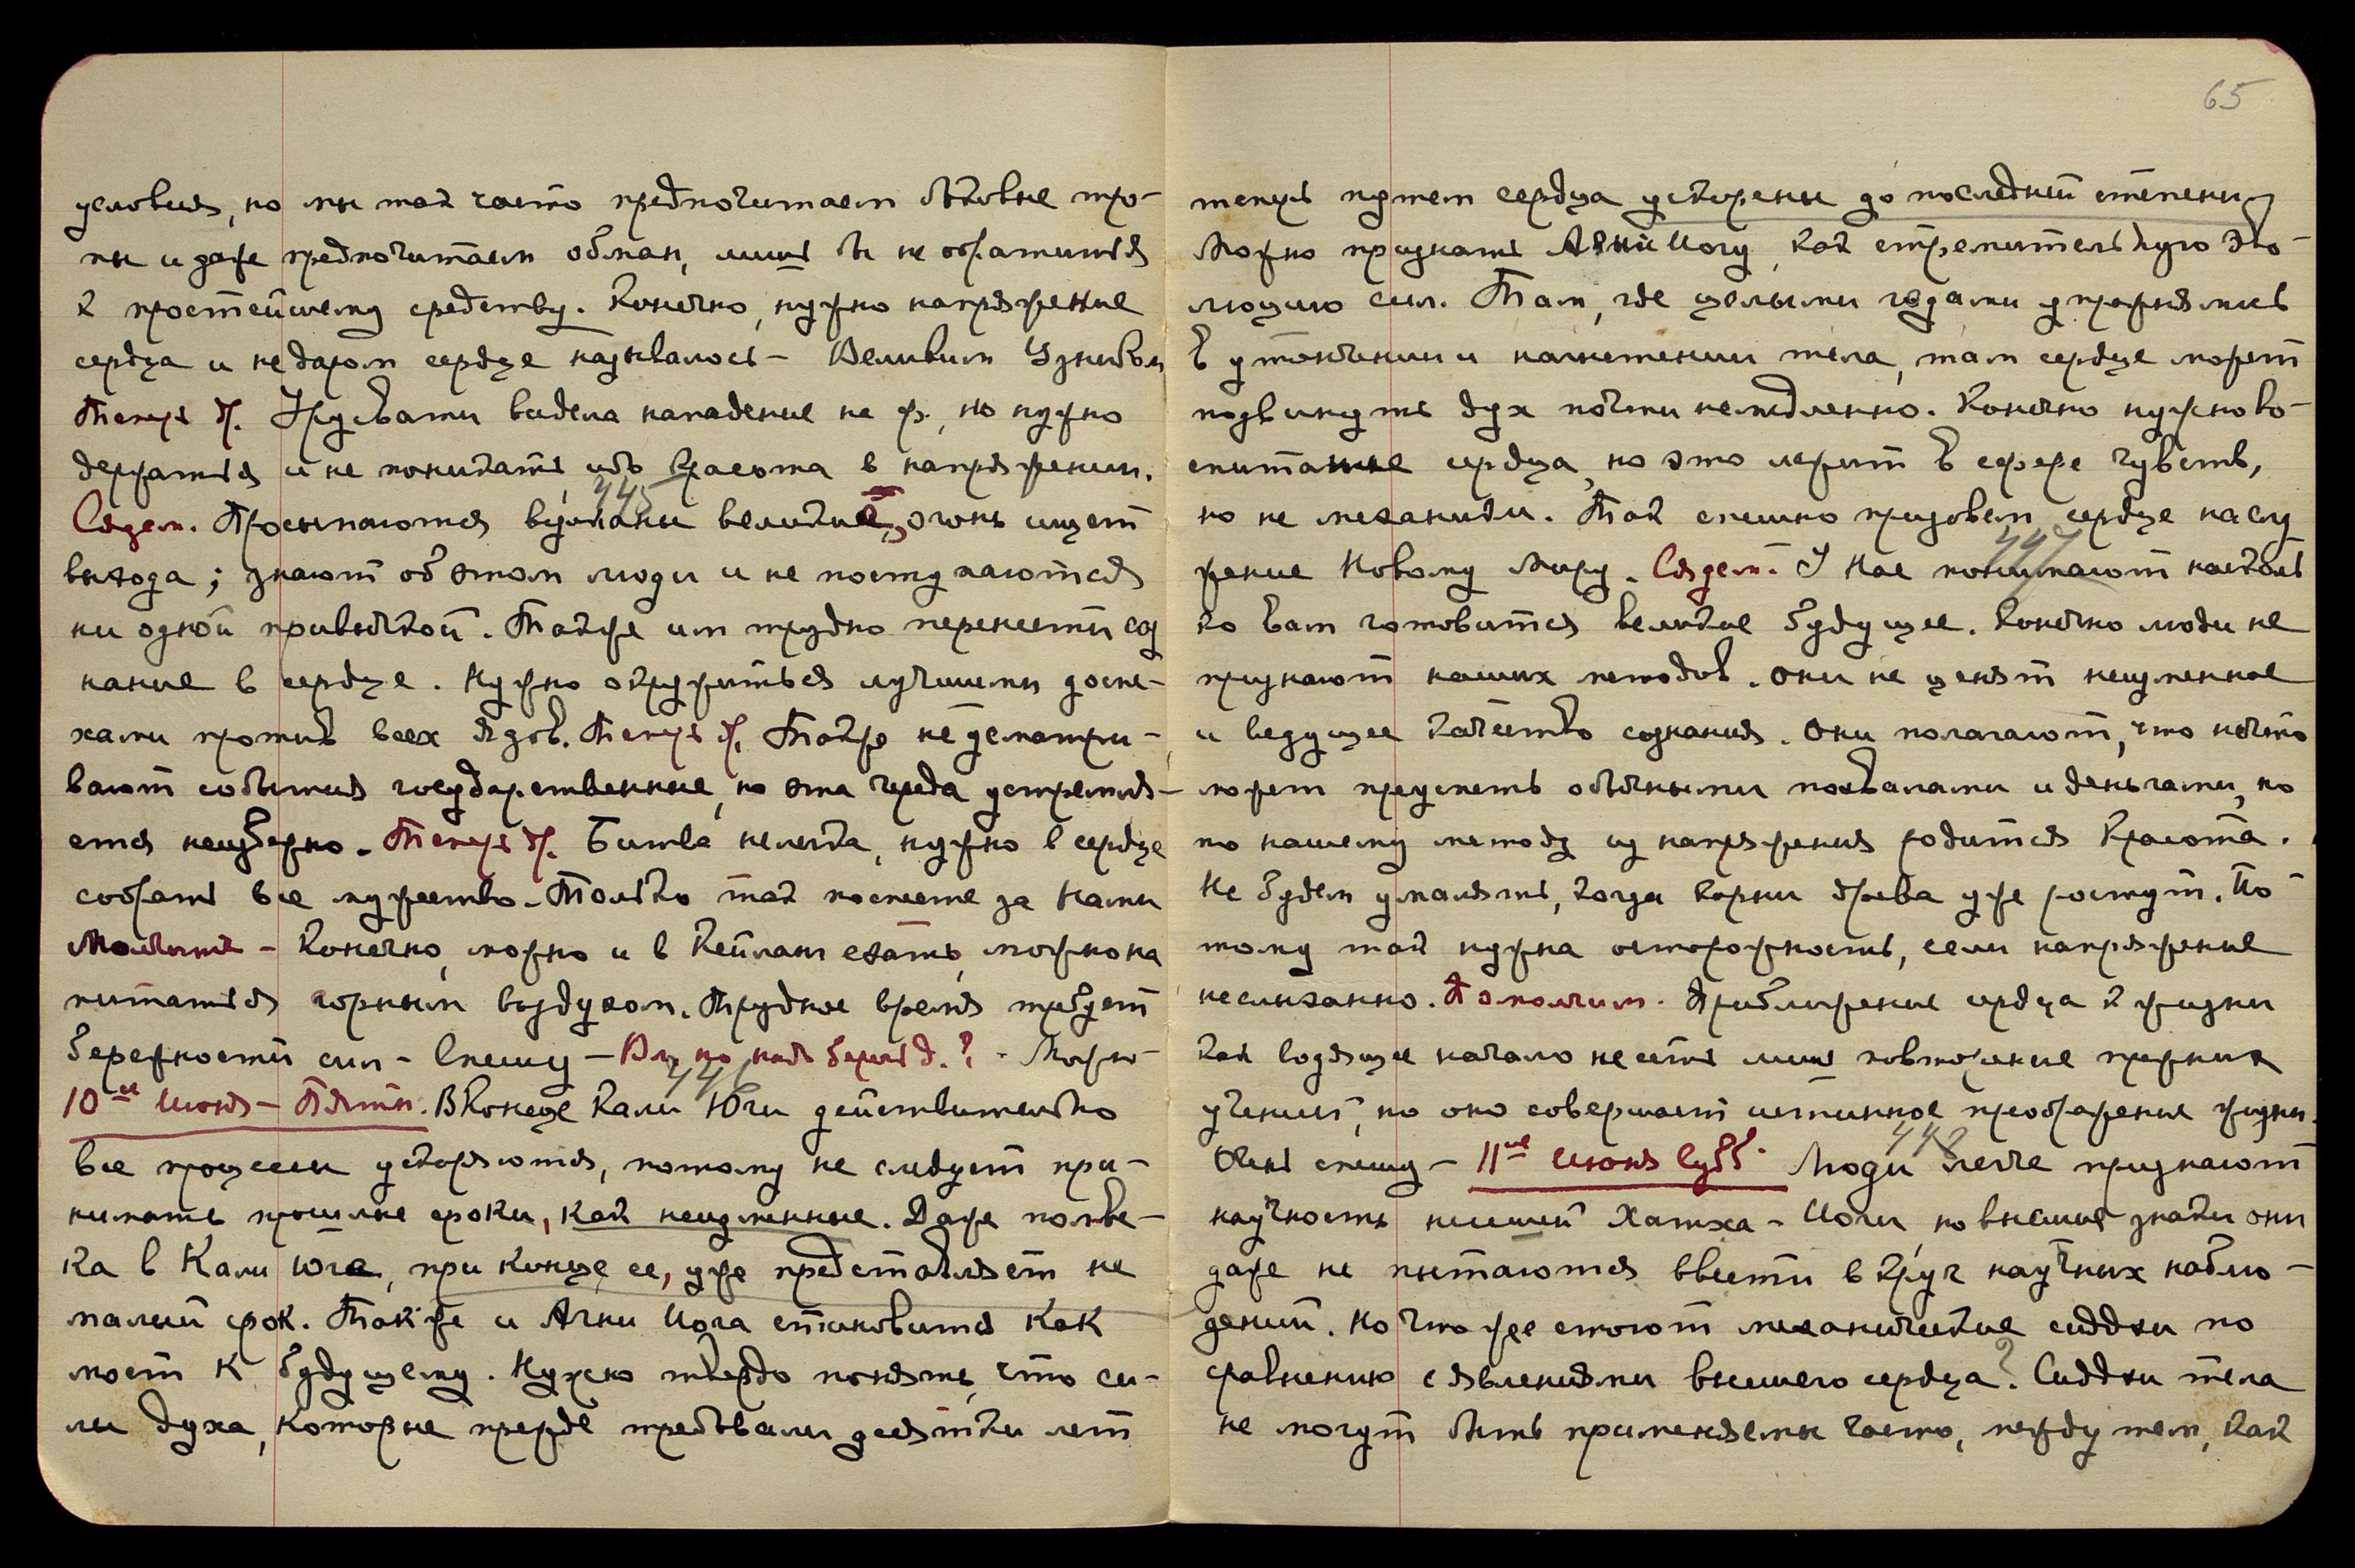 условия, но мы так часто предпочитаем бытовые тро-
пы и даже предпочитаем обман, лишь бы не обратиться
к простейшему средству. Конечно, нужно напряжение
сердца и недаром сердце называлось – Великим Узником
Теперь др. Урусвати видела нападение на ф., но нужно
держаться и не поникать, ибо красота в напряжении.
445
Сядем. Просыпаются вулканы великие, огонь ищет
выхода; знают об этом люди и не поступаются
ни одной привычкой. Также им трудно перенести соз
нание в сердце. Нужно окружиться лучшими доспе-
хами против всех ядов. Теперь др. Также не усматри-
вают события государственные, но эта чреда устремля-
ется неизбежно. Теперь др. Битва нелегка, нужно в сердце
собрать все мужество. Только так поспеете за Нами
Молчите – Конечно, можно и в Кейланг ехать, можно на
питаться горным воздухом. Трудное время требует
бережности сил – Спешу – Вл, но надо беречь д.? – Можно –
446
10ое Июня – Пятн. В конце Кали Юги действительно
все процессы ускоряются, потому не следует при-
нимать прошлые сроки, как неизменные. Даже полве-
ка в Кали Юге, при конце ее, уже представляет не
малый срок. Также и Агни Йога становится как
мост к будущему. Нужно твердо понять, что си-
лы духа, которые прежде требовали десятки лет
65
теперь путем сердца ускорены до последней степени,
Можно признать Агни Йогу, как стремительную эво-
люцию сил. Там, где целыми годами упражнялись
в утончении и напитении тела, там сердце может
подвинуть дух почти немедленно. Конечно нужно во-
спитание сердца, но это лежит в сфере чувств,
но не механики. Так спешно призовем сердце на слу
жение Новому Миру. Сядем. 447 У Нас понимают насколь
ко вам готовится великое будущее. Конечно люди не
признают наших методов. Они не ценят неизменное
и ведущее качество сознания. Они полагают, что нечто
может преуспеть обычными похвалами и деньгами, но
по нашему методу из напряжения родится Красота.
Не будем умалять, когда корни древа уже растут. По
тому так нужна осторожность, если напряжение
неслыханно. Помолчим. Приближение сердца к жизни
как водящее начало не есть лишь повторение прежних
учений, но оно совершает истинное преображение жизни.
Очень спешу – 11ое Июня Субб. 448 Люди легче признают
научность низшей Хатха-Йоги, но высшие знаки они
даже не пытаются ввести в круг научных наблю-
дений. Но что же стоят механические сиддхи по
сравнению с явлениями высшего сердца? Сиддхи тела
не могут быть применяемы часто, между тем, как